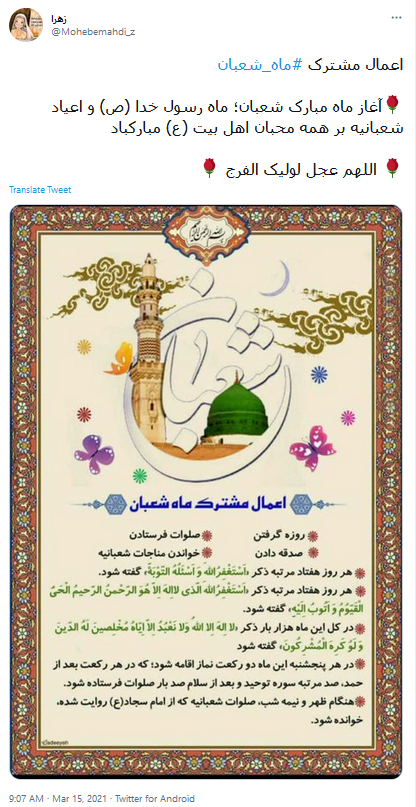 زهرا
@Mohebemahdi_z
اعمال مشترک #ماه_شعبان
🌹آغاز ماه مبارک شعبان؛ ماه رسول خدا (ص) و اعیاد
شعبانیه بر همه محبان اهل بیت (ع) مبارکباد
🌹 اللهم عجل لولیک الفرج 🌹
Translate Tweet
بسم الله الرحمن الرحیم
شعبان
اعمال مشترک ماه شعبان
روزه گرفتن
صلوات فرستادن
صدقه دادن
خواندن مناجات شعبانیه
هر روز هفتاد مرتبه ذکر «اَستَغفِرُالله وَ اَسئَلُهُ التّوبَةَ» گفته شود.
هر روز هفتاد مرتبه ذکر «اَستَغفِرُاللهَ الَّذی لااِلهَ اِلّا هُوَ الرَّحمنُ الرَّحیمُ الحَیُّ
القَیّومُ وَ اَتوبُ اِلَیهِ» گفته شود.
در کل این ماه هزار بار ذکر «لا اِلهَ اِلا اللهُ وَلا نَعبُدُ اِلّا اِیّاهُ مُخلِصینَ لَهُ الدّینَ
وَ لَو کَرِهَ المُشرِکُونَ» گفته شود
در هر پنجشنبه این ماه دو رکعت نماز اقامه شود؛ که در هر رکعت بعد از
حمد، صد مرتبه سوره توحید و بعد از سلام صد بار صلوات فرستاده شود.
هنگام ظهر و نیمه شب، صلوات شعبانیه که از امام سجاد(ع) روایت شده،
خوانده شود.
9:07 AM · Mar 15, 2021 · Twitter for Android